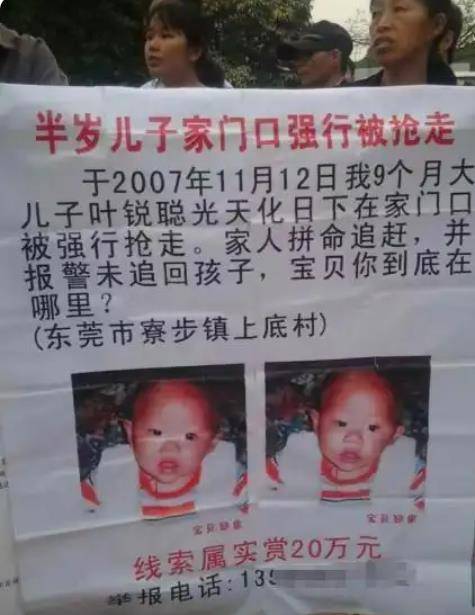 半岁儿子家门口强行被抢走
于2007年11月12日我9个月大
儿子叶锐聪光天化日下在家门口
被强行抢走。家人拼命追赶，并
报警未追回孩子，宝贝你到底在
哪里？
(东莞市寮步镇上底村)
线索属实赏20万元
举报电话:135